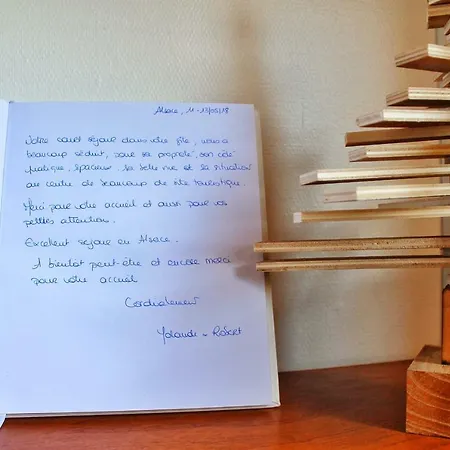 Alsace, 11-13/05/18
Notre court séjour dans votre gîte, nous a
beaucoup séduit, pour sa propreté, son côté
pratique, spacieux, la belle vue et la situation
au centre de beaucoup de site touristique.
Merci pour votre accueil et aussi pour vos
petites attention.
Excellent sejour en Alsace.
A bientôt peut-être et encore merci
pour votre accueil
Cordialement
Yolande - Robert